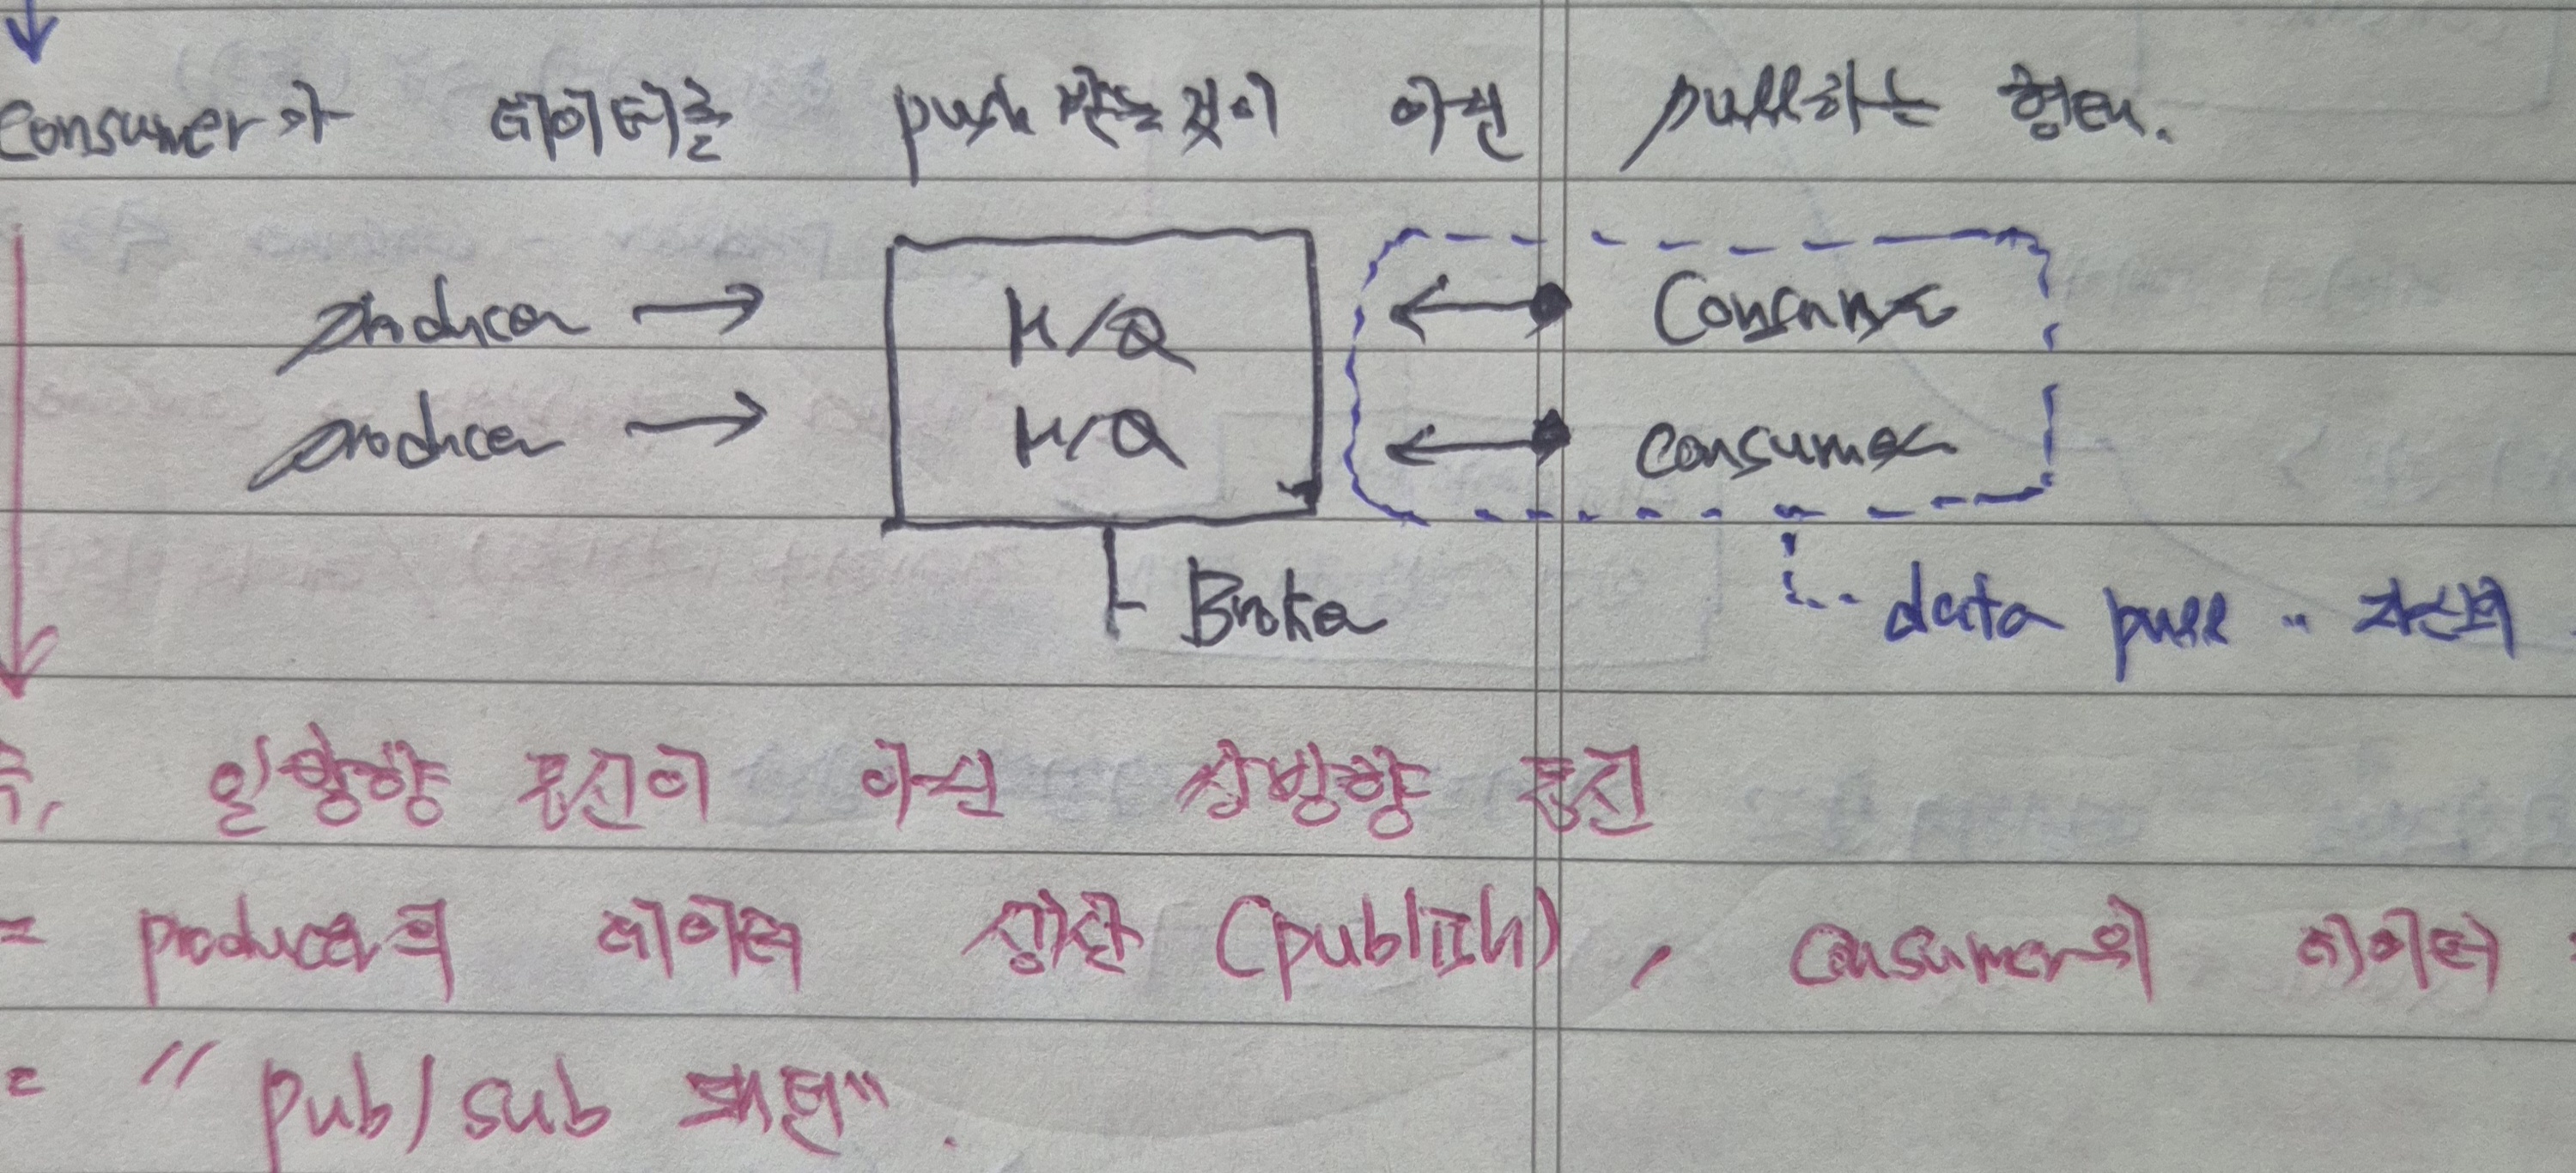 consumer가 데이터를 push 받는것이 아닌 pull하는 형태.
producer → M/Q ← Consumer
producer → M/Q ← consumer
Broker
data pull .. 자신의
즉, 일방향 통신이 아닌 쌍방향 통신
= producer의 데이터 생산 (publish), consumer의 데이터
= "pub/sub 패턴".